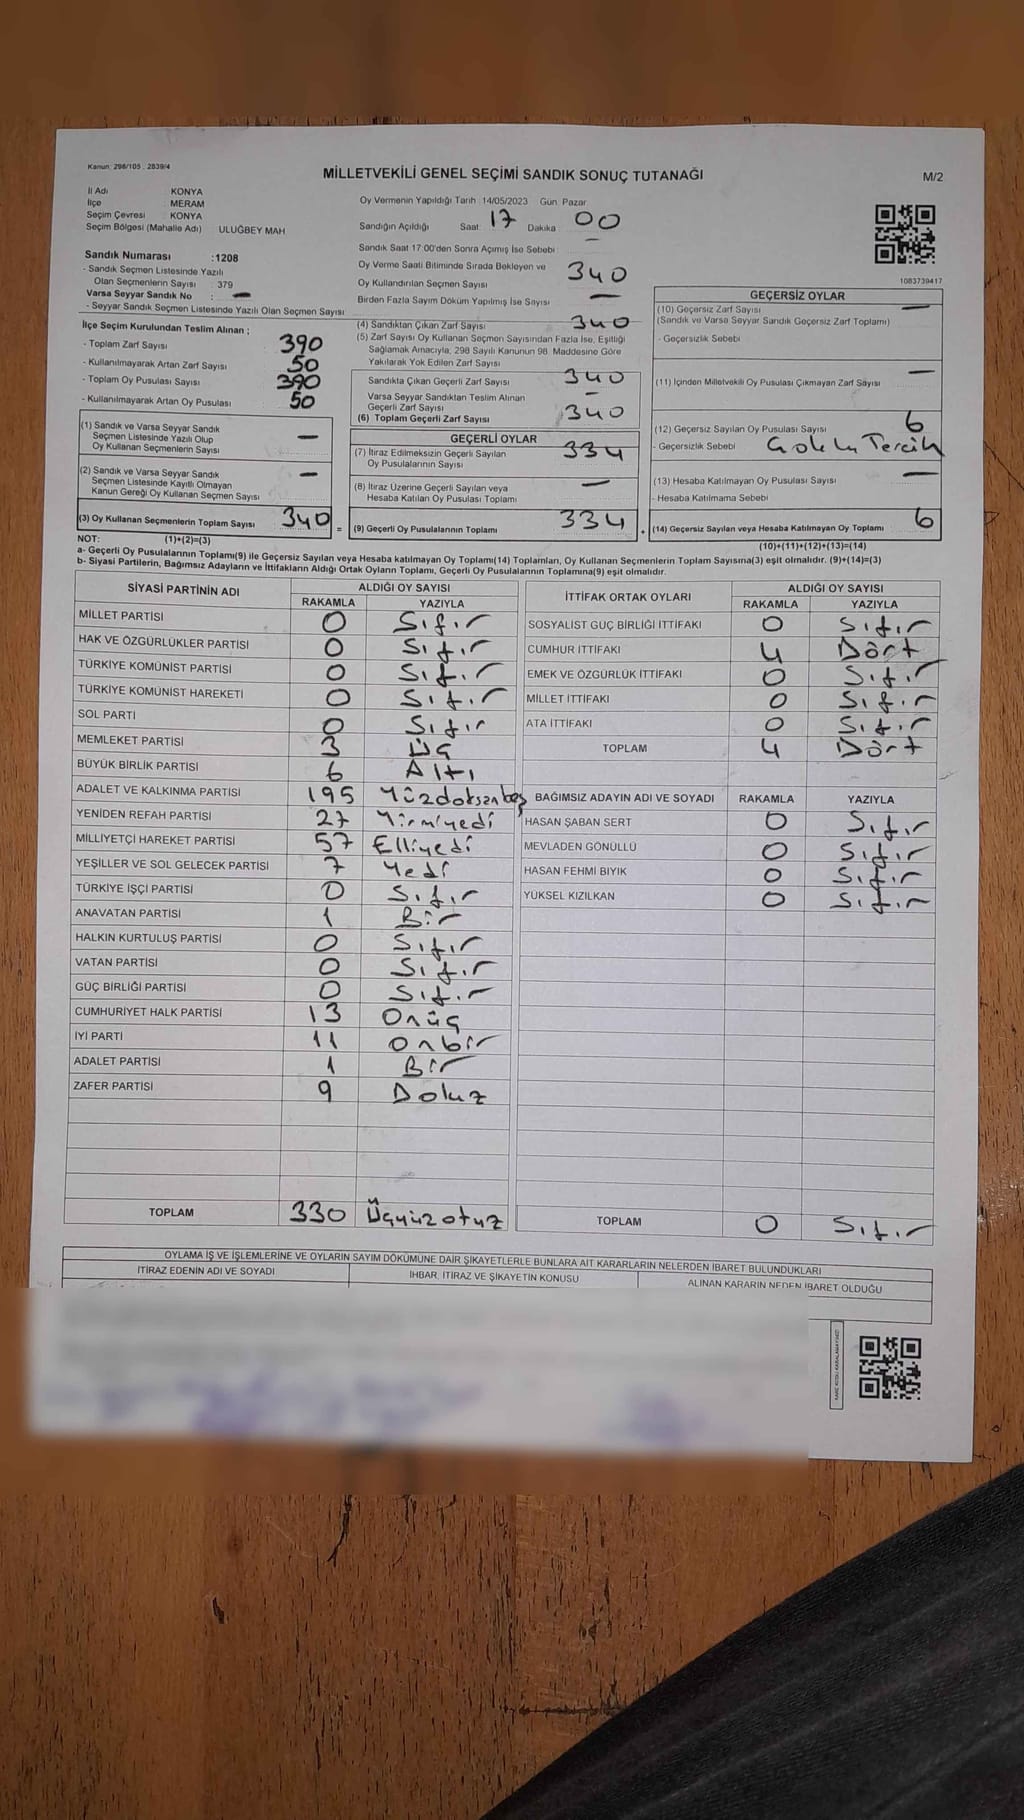 Kanun: 298/105 , 2839/4
MİLLETVEKİLİ GENEL SEÇİMİ SANDIK SONUÇ TUTANAĞI
M/2
İl Adı KONYA
İlçe MERAM
Seçim Çevresi KONYA
Seçim Bölgesi (Mahalle Adı) ULUĞBEY MAH
Oy Vermenin Yapıldığı Tarih 14/05/2023 Gün Pazar
Sandığın Açıldığı Saat 17 Dakika 00
Sandık Saat 17:00'den Sonra Açımış İse Sebebi -
Oy Verme Saati Bitiminde Sırada Bekleyen ve
Oy Kullandırılan Seçmen Sayısı 340
Birden Fazla Sayım Döküm Yapılmış İse Sayısı -
Sandık Numarası :1208
- Sandık Seçmen Listesinde Yazılı
Olan Seçmenlerin Sayısı : 379
Varsa Seyyar Sandık No : -
- Seyyar Sandık Seçmen Listesinde Yazılı Olan Seçmen Sayısı
1083739417
İlçe Seçim Kurulundan Teslim Alınan ;
- Toplam Zarf Sayısı 390
- Kullanılmayarak Artan Zarf Sayısı 50
- Toplam Oy Pusulası Sayısı 390
- Kullanılmayarak Artan Oy Pusulası 50
(1) Sandık ve Varsa Seyyar Sandık
Seçmen Listesinde Yazılı Olup
Oy Kullanan Seçmenlerin Sayısı -
(2) Sandık ve Varsa Seyyar Sandık
Seçmen Listesinde Kayıtlı Olmayan
Kanun Gereği Oy Kullanan Seçmen Sayısı -
(3) Oy Kullanan Seçmenlerin Toplam Sayısı 340
(1)+(2)=(3)
(4) Sandıktan Çıkan Zarf Sayısı 340
(5) Zarf Sayısı Oy Kullanan Seçmen Sayısından Fazla İse, Eşitliği
Sağlamak Amacıyla, 298 Sayılı Kanunun 98. Maddesine Göre
Yakılarak Yok Edilen Zarf Sayısı
Sandıkta Çıkan Geçerli Zarf Sayısı 340
Varsa Seyyar Sandıktan Teslim Alınan
Geçerli Zarf Sayısı -
(6) Toplam Geçerli Zarf Sayısı 340
GEÇERLİ OYLAR
(7) İtiraz Edilmeksizin Geçerli Sayılan
Oy Pusulalarının Sayısı 334
(8) İtiraz Üzerine Geçerli Sayılan veya
Hesaba Katılan Oy Pusulası Toplamı -
= (9) Geçerli Oy Pusulalarının Toplamı 334
GEÇERSİZ OYLAR
(10) Geçersiz Zarf Sayısı -
(Sandık ve Varsa Seyyar Sandık Geçersiz Zarf Toplamı)
- Geçersizlik Sebebi
(11) İçinden Milletvekili Oy Pusulası Çıkmayan Zarf Sayısı -
(12) Geçersiz Sayılan Oy Pusulası Sayısı 6
- Geçersizlik Sebebi Çoklu Tercih
(13) Hesaba Katılmayan Oy Pusulası Sayısı -
- Hesaba Katılmama Sebebi
+ (14) Geçersiz Sayılan veya Hesaba Katılmayan Oy Toplamı 6
(10)+(11)+(12)+(13)=(14)
NOT:
a- Geçerli Oy Pusulalarının Toplamı(9) ile Geçersiz Sayılan veya Hesaba katılmayan Oy Toplamı(14) Toplamları, Oy Kullanan Seçmenlerin Toplam Sayısına(3) eşit olmalıdır. (9)+(14)=(3)
b- Siyasi Partilerin, Bağımsız Adayların ve İttifakların Aldığı Ortak Oyların Toplamı, Geçerli Oy Pusulalarının Toplamına(9) eşit olmalıdır.
SİYASİ PARTİNİN ADI ALDIĞI OY SAYISI
RAKAMLA YAZIYLA
MİLLET PARTİSİ 0 Sıfır
HAK VE ÖZGÜRLÜKLER PARTİSİ 0 Sıfır
TÜRKİYE KOMÜNİST PARTİSİ 0 Sıfır
TÜRKİYE KOMÜNİST HAREKETİ 0 Sıfır
SOL PARTİ 0 Sıfır
MEMLEKET PARTİSİ 3 Üç
BÜYÜK BİRLİK PARTİSİ 6 Altı
ADALET VE KALKINMA PARTİSİ 195 Yüzdoksanbeş
YENİDEN REFAH PARTİSİ 27 Yirmiyedi
MİLLİYETÇİ HAREKET PARTİSİ 57 Elliyedi
YEŞİLLER VE SOL GELECEK PARTİSİ 7 Yedi
TÜRKİYE İŞÇİ PARTİSİ 0 Sıfır
ANAVATAN PARTİSİ 1 Bir
HALKIN KURTULUŞ PARTİSİ 0 Sıfır
VATAN PARTİSİ 0 Sıfır
GÜÇ BİRLİĞİ PARTİSİ 0 Sıfır
CUMHURİYET HALK PARTİSİ 13 Onüç
İYİ PARTİ 11 Onbir
ADALET PARTİSİ 1 Bir
ZAFER PARTİSİ 9 Dokuz
TOPLAM 330 Üçyüzotuz
İTTİFAK ORTAK OYLARI ALDIĞI OY SAYISI
RAKAMLA YAZIYLA
SOSYALİST GÜÇ BİRLİĞİ İTTİFAKI 0 Sıfır
CUMHUR İTTİFAKI 4 Dört
EMEK VE ÖZGÜRLÜK İTTİFAKI 0 Sıfır
MİLLET İTTİFAKI 0 Sıfır
ATA İTTİFAKI 0 Sıfır
TOPLAM 4 Dört
BAĞIMSIZ ADAYIN ADI VE SOYADI RAKAMLA YAZIYLA
HASAN ŞABAN SERT 0 Sıfır
MEVLADEN GÖNÜLLÜ 0 Sıfır
HASAN FEHMİ BIYIK 0 Sıfır
YÜKSEL KIZILKAN 0 Sıfır
TOPLAM 0 Sıfır
OYLAMA İŞ VE İŞLEMLERİNE VE OYLARIN SAYIM DÖKÜMÜNE DAİR ŞİKAYETLERLE BUNLARA AİT KARARLARIN NELERDEN İBARET BULUNDUKLARI
İTİRAZ EDENİN ADI VE SOYADI İHBAR, İTİRAZ VE ŞİKAYETİN KONUSU ALINAN KARARIN NEDEN İBARET OLDUĞU